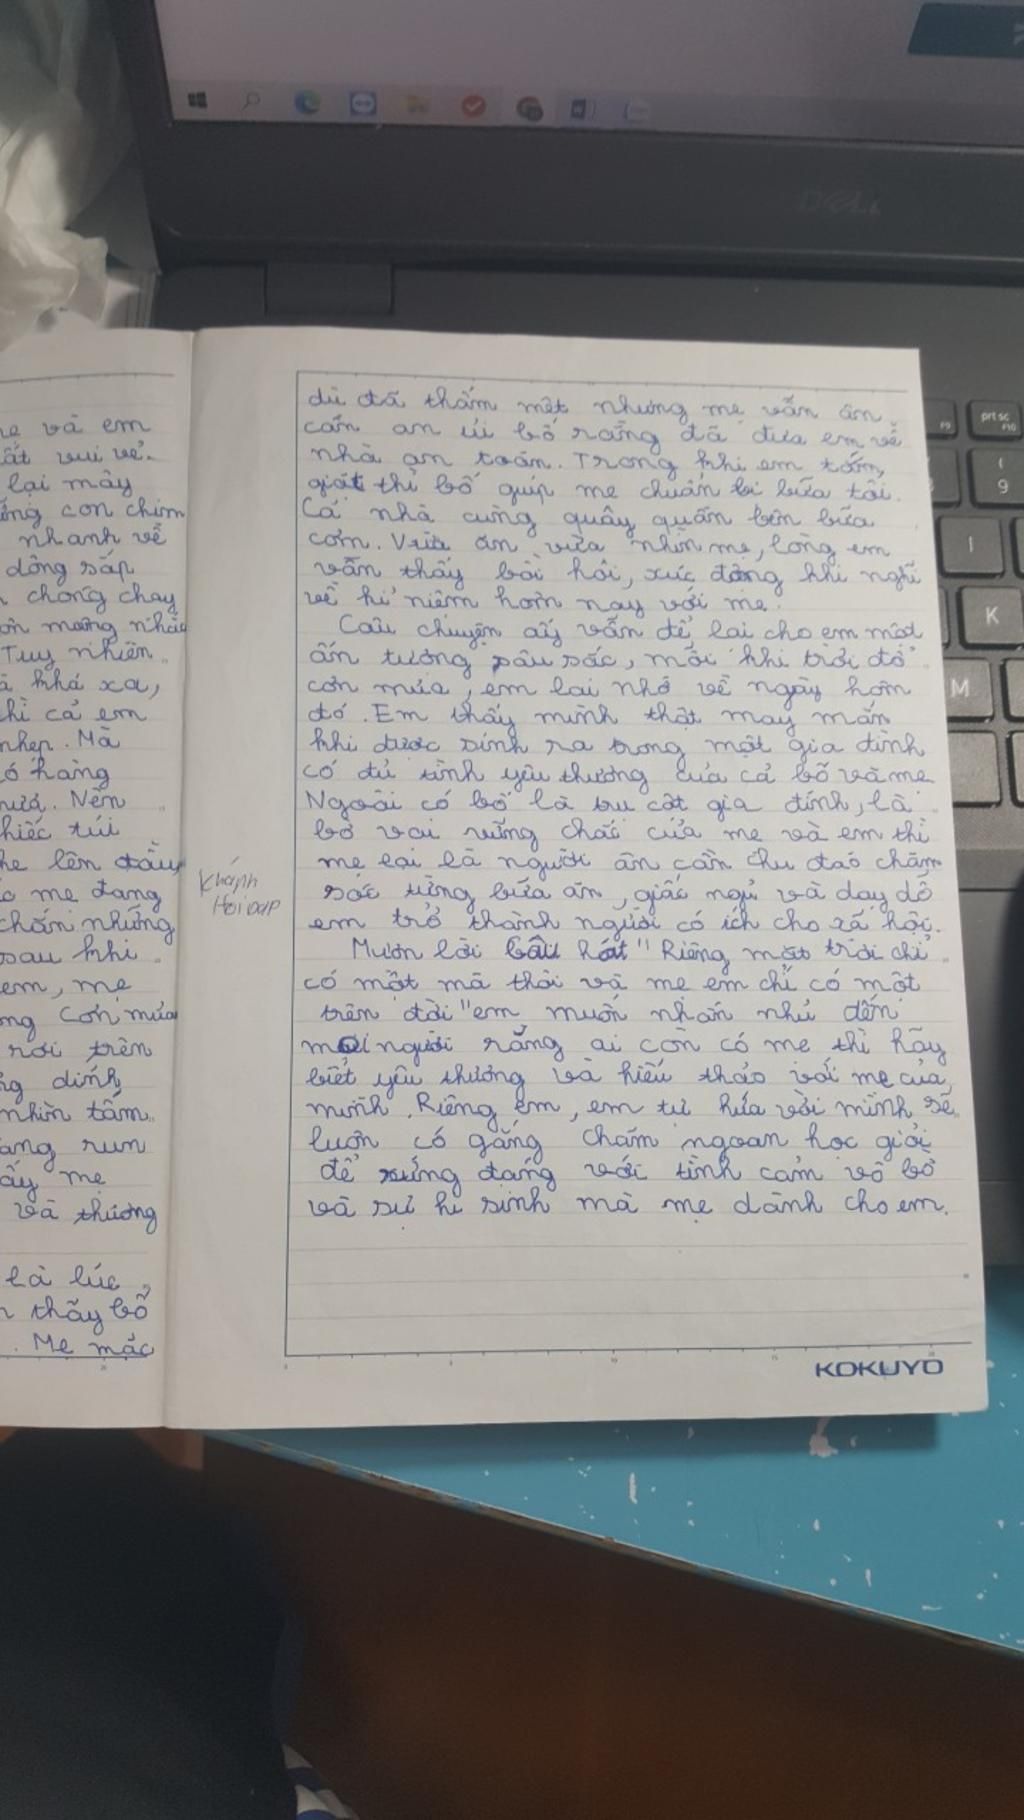 prt sc
F10
F9
9
I
K
M
DELL
mẹ và em
rất vui vẻ.
lại mây
những con chim
nhanh về
dông sắp
chong chay
Tuy nhiên
khá xa,
thì cả em
nhẹp. Mà
có hàng
mưa. Nên
chiếc túi
che lên đầu
mẹ đang
chắn những
sau khi
em, mẹ
cơn mưa
rơi trên
dính
nhìn tấm
đang run
thấy mẹ
và thương
là lúc
thấy bố
. Mẹ mặc
dù đã thấm mệt nhưng mẹ vẫn ân
cần an ủi bố rằng đã đưa em về
nhà an toàn. Trong khi em tắm,
giặt thì bố giúp mẹ chuẩn bị bữa tối.
Cả nhà cùng quây quần bên bữa
cơm. Vừa ăn, vừa nhìn mẹ, lòng em
vẫn thấy bồi hồi, xúc động khi nghĩ
về kỉ niệm hôm nay với mẹ.
Câu chuyện ấy vẫn để lại cho em một
ấn tượng sâu sắc, mỗi khi trời đổ
cơn mưa, em lại nhớ về ngày hôm
đó. Em thấy mình thật may mắn
khi được sinh ra trong một gia đình
có đủ tình yêu thương của cả bố và mẹ.
Ngoài có bố là trụ cột gia đình, là
bờ vai vững chắc của mẹ và em thì
mẹ lại là người ân cần chu đáo chăm
sóc từng bữa ăn, giấc ngủ và dạy dỗ
em trở thành người có ích cho xã hội.
Mượn lời câu hát "Riêng mặt trời chỉ
có một mà thôi và mẹ em chỉ có một
trên đời" em muốn nhắn nhủ đến
mọi người rằng ai còn có mẹ thì hãy
biết yêu thương và hiếu thảo với mẹ của
mình. Riêng em, em tự hứa với mình sẽ
luôn cố gắng chăm ngoan học giỏi
để xứng đáng với tình cảm vô bờ
và sự hi sinh mà mẹ dành cho em.
Khánh
KOKUYO